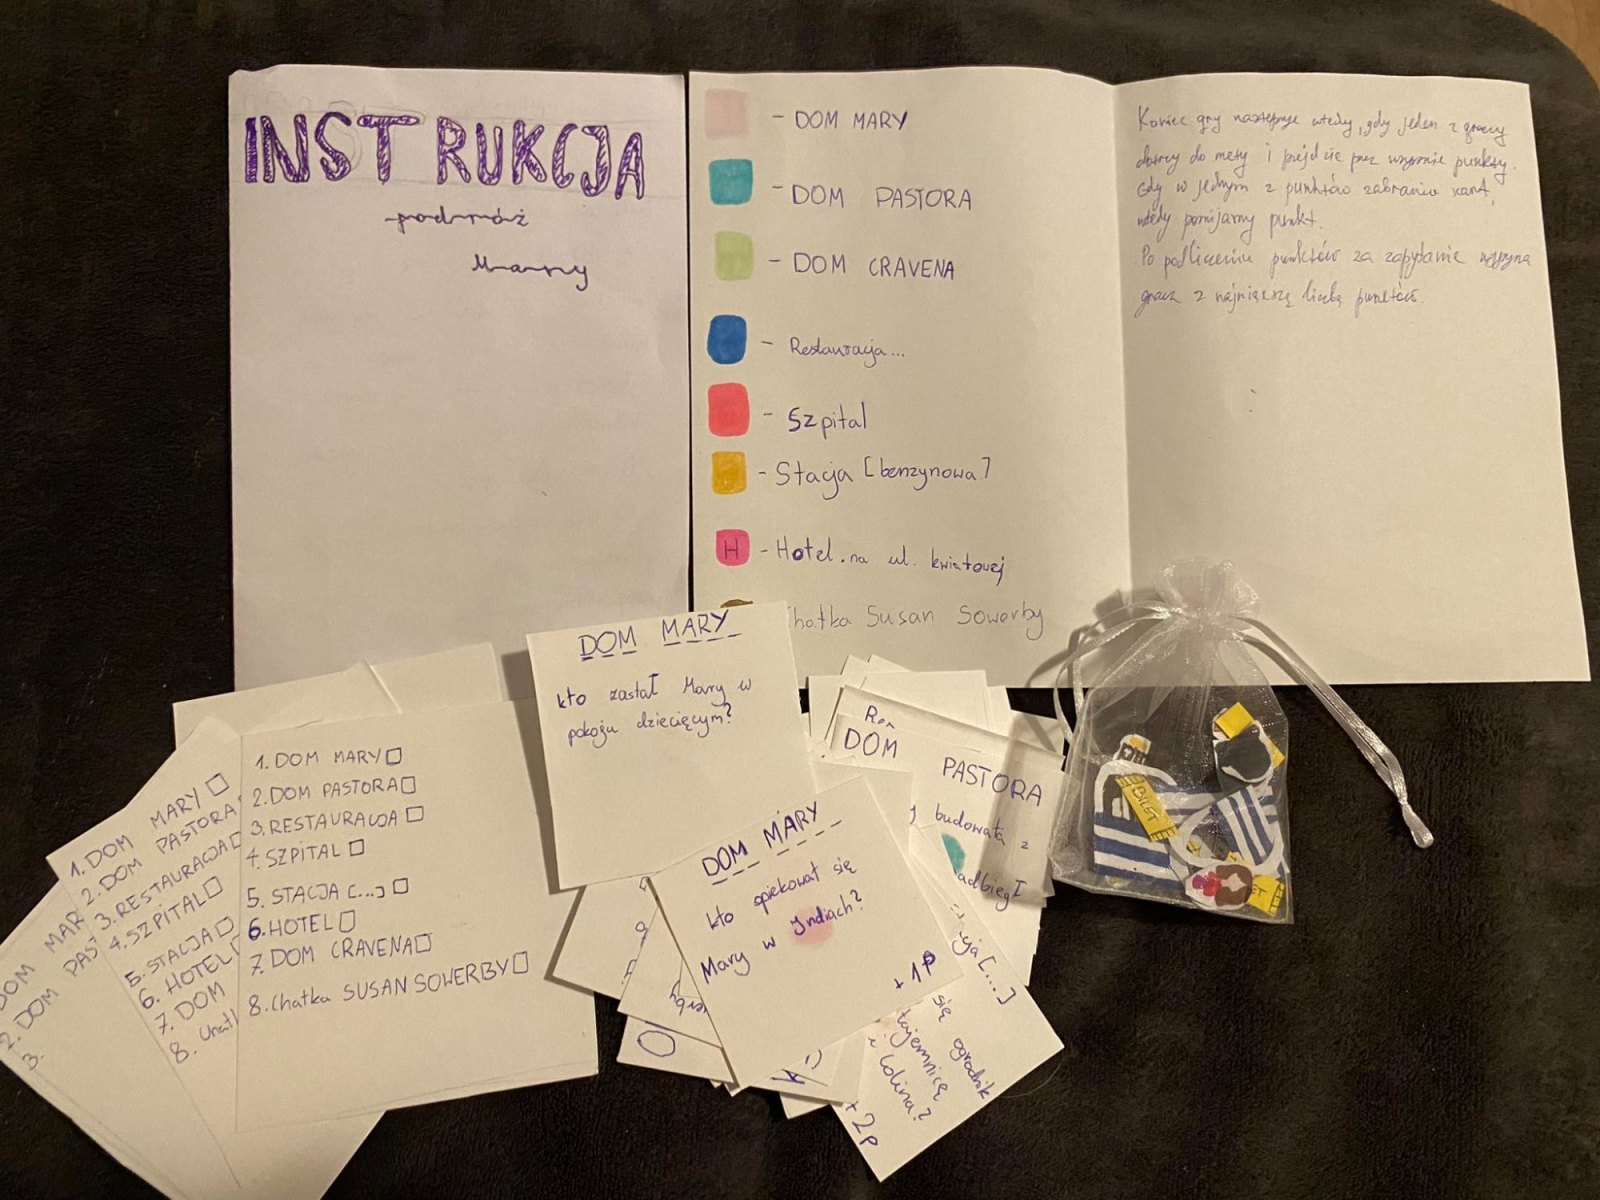 INSTRUKCJA
podróż
Mary
- DOM MARY
- DOM PASTORA
- DOM CRAVENA
- Restauracja...
- Szpital
- Stacja [benzynowa]
H - Hotel. na ul. kwiatowej
Chatka Susan Sowerby
Koniec gry następuje wtedy, gdy jeden z graczy
dotrze do mety i przejdzie przez wszystkie punkty.
Gdy w jednym z punktów zabraknie kart,
wtedy pomijamy punkt.
Po podliczeniu punktów za zapytanie wygrywa
gracz z największą liczbą punktów.
DOM MARY
kto zastał Mary w
pokoju dziecięcym?
DOM MARY
kto opiekował się
Mary w Yndiach?
+1P
DOM PASTORA
budowała z
nadbiegł
się ogrodnik
tajemnicę
Colina?
+2p
1. DOM MARY
2. DOM PASTORA
3. RESTAURACJA
4. SZPITAL
5. STACJA [...]
6. HOTEL
7. DOM CRAVENA
8. Chatka SUSAN SOWERBY
1. DOM MARY
2. DOM PASTORA
3. RESTAURACJA
4. SZPITAL
5. STACJA
6. HOTEL
7. DOM
8. Chat
DOM MAR
2. DOM PAST
3.
BILET